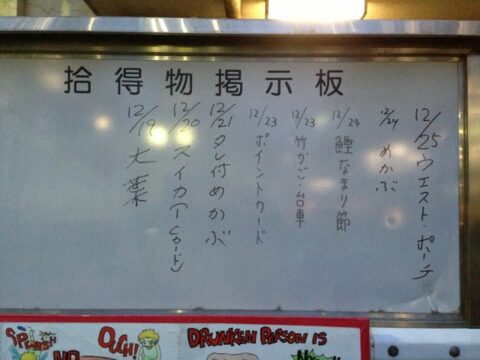 拾得物掲示板
12/25 ウエスト・ポーチ
12/24 めかぶ
12/24 鰹なまり節
12/23 竹かご・台車
12/23 ポイントカード
12/21 タレ付めかぶ
12/20 スイカ(ICカード)
12/19 大葉
OUCH!
DRUNKEN PERSON IS
NO